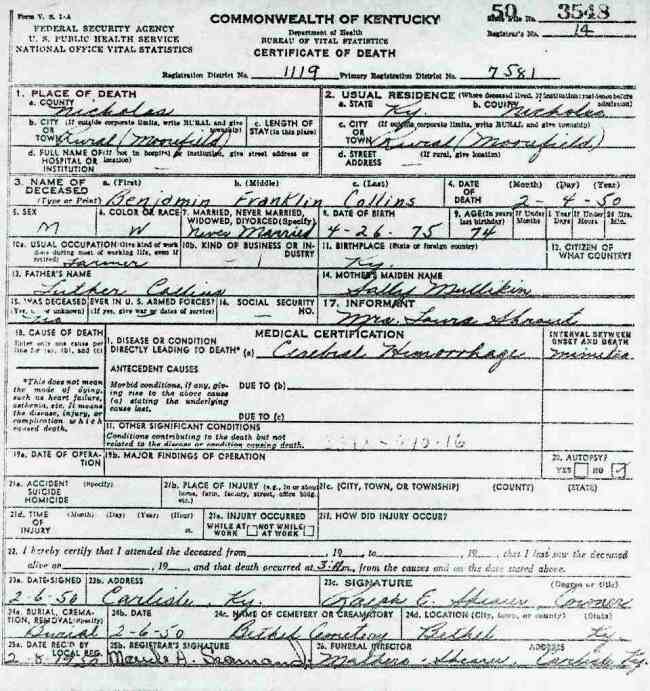 Form V. S. 1-A
FEDERAL SECURITY AGENCY
U. S. PUBLIC HEALTH SERVICE
NATIONAL OFFICE VITAL STATISTICS
COMMONWEALTH OF KENTUCKY
Department of Health
BUREAU OF VITAL STATISTICS
CERTIFICATE OF DEATH
50 3548
File No.
Registrar's No. 14
Registration District No. 1119 Primary Registration District No. 7581
1. PLACE OF DEATH
a. COUNTY Nicholas
b. CITY (If outside corporate limits, write RURAL and give township) OR TOWN Rural (Moorefield)
c. LENGTH OF STAY (in this place)
d. FULL NAME OF (If not in hospital or institution, give street address or location) HOSPITAL OR INSTITUTION —
2. USUAL RESIDENCE (Where deceased lived. If institution: residence before admission)
a. STATE Ky. b. COUNTY Nicholas
c. CITY (If outside corporate limits, write RURAL and give township) OR TOWN Rural (Moorefield)
d. STREET ADDRESS (If rural, give location) —
3. NAME OF DECEASED (Type or Print) a. (First) Benjamin b. (Middle) Franklin c. (Last) Collins
4. DATE OF DEATH (Month) (Day) (Year) 2-4-50
5. SEX M
6. COLOR OR RACE W
7. MARRIED, NEVER MARRIED, WIDOWED, DIVORCED (Specify) Never Married
8. DATE OF BIRTH 4-26-75
9. AGE (In years last birthday) 74 If Under 1 Year Months Days If Under 24 Hrs. Hours Min.
10a. USUAL OCCUPATION (Give kind of work done during most of working life, even if retired) Farmer
10b. KIND OF BUSINESS OR INDUSTRY
11. BIRTHPLACE (State or foreign country) Ky.
12. CITIZEN OF WHAT COUNTRY?
13. FATHER'S NAME Luther Collins
14. MOTHER'S MAIDEN NAME Sally Mullikin
15. WAS DECEASED EVER IN U. S. ARMED FORCES? (Yes, no, or unknown) (If yes, give war or dates of service) No
16. SOCIAL SECURITY NO. —
17. INFORMANT Mrs. Laura Sprout
18. CAUSE OF DEATH
Enter only one cause per line for (a), (b), and (c)
*This does not mean the mode of dying, such as heart failure, asthenia, etc. It means the disease, injury, or complication which caused death.
MEDICAL CERTIFICATION
INTERVAL BETWEEN ONSET AND DEATH
I. DISEASE OR CONDITION DIRECTLY LEADING TO DEATH* (a) Cerebral Hemorrhage minutes
ANTECEDENT CAUSES
Morbid conditions, if any, giving rise to the above cause (a) stating the underlying cause last.
DUE TO (b)
DUE TO (c)
II. OTHER SIGNIFICANT CONDITIONS
Conditions contributing to the death but not related to the disease or condition causing death.
19a. DATE OF OPERATION
19b. MAJOR FINDINGS OF OPERATION
20. AUTOPSY? YES NO
21a. ACCIDENT SUICIDE HOMICIDE (Specify)
21b. PLACE OF INJURY (e.g., in or about home, farm, factory, street, office bldg., etc.)
21c. (CITY, TOWN, OR TOWNSHIP) (COUNTY) (STATE)
21d. TIME OF INJURY (Month) (Day) (Year) (Hour) m.
21e. INJURY OCCURRED WHILE AT WORK NOT WHILE AT WORK
21f. HOW DID INJURY OCCUR?
22. I hereby certify that I attended the deceased from , 19 , to , 19 , that I last saw the deceased
alive on , 19 , and that death occurred at 3:Am., from the causes and on the date stated above.
23a. DATE SIGNED 2-6-50
23b. ADDRESS Carlisle, Ky.
23c. SIGNATURE (Degree or title) Ralph E. Shearer Coroner
24a. BURIAL, CREMATION, REMOVAL (Specify) Burial
24b. DATE 2-6-50
24c. NAME OF CEMETERY OR CREMATORY Bethel Cemetery
24d. LOCATION (City, town, or county) (State) Bethel Ky.
25a. DATE REC'D BY LOCAL REG. 2-8-1950
25b. REGISTRAR'S SIGNATURE
26. FUNERAL DIRECTOR ADDRESS Mathers-Shearer, Carlisle Ky.